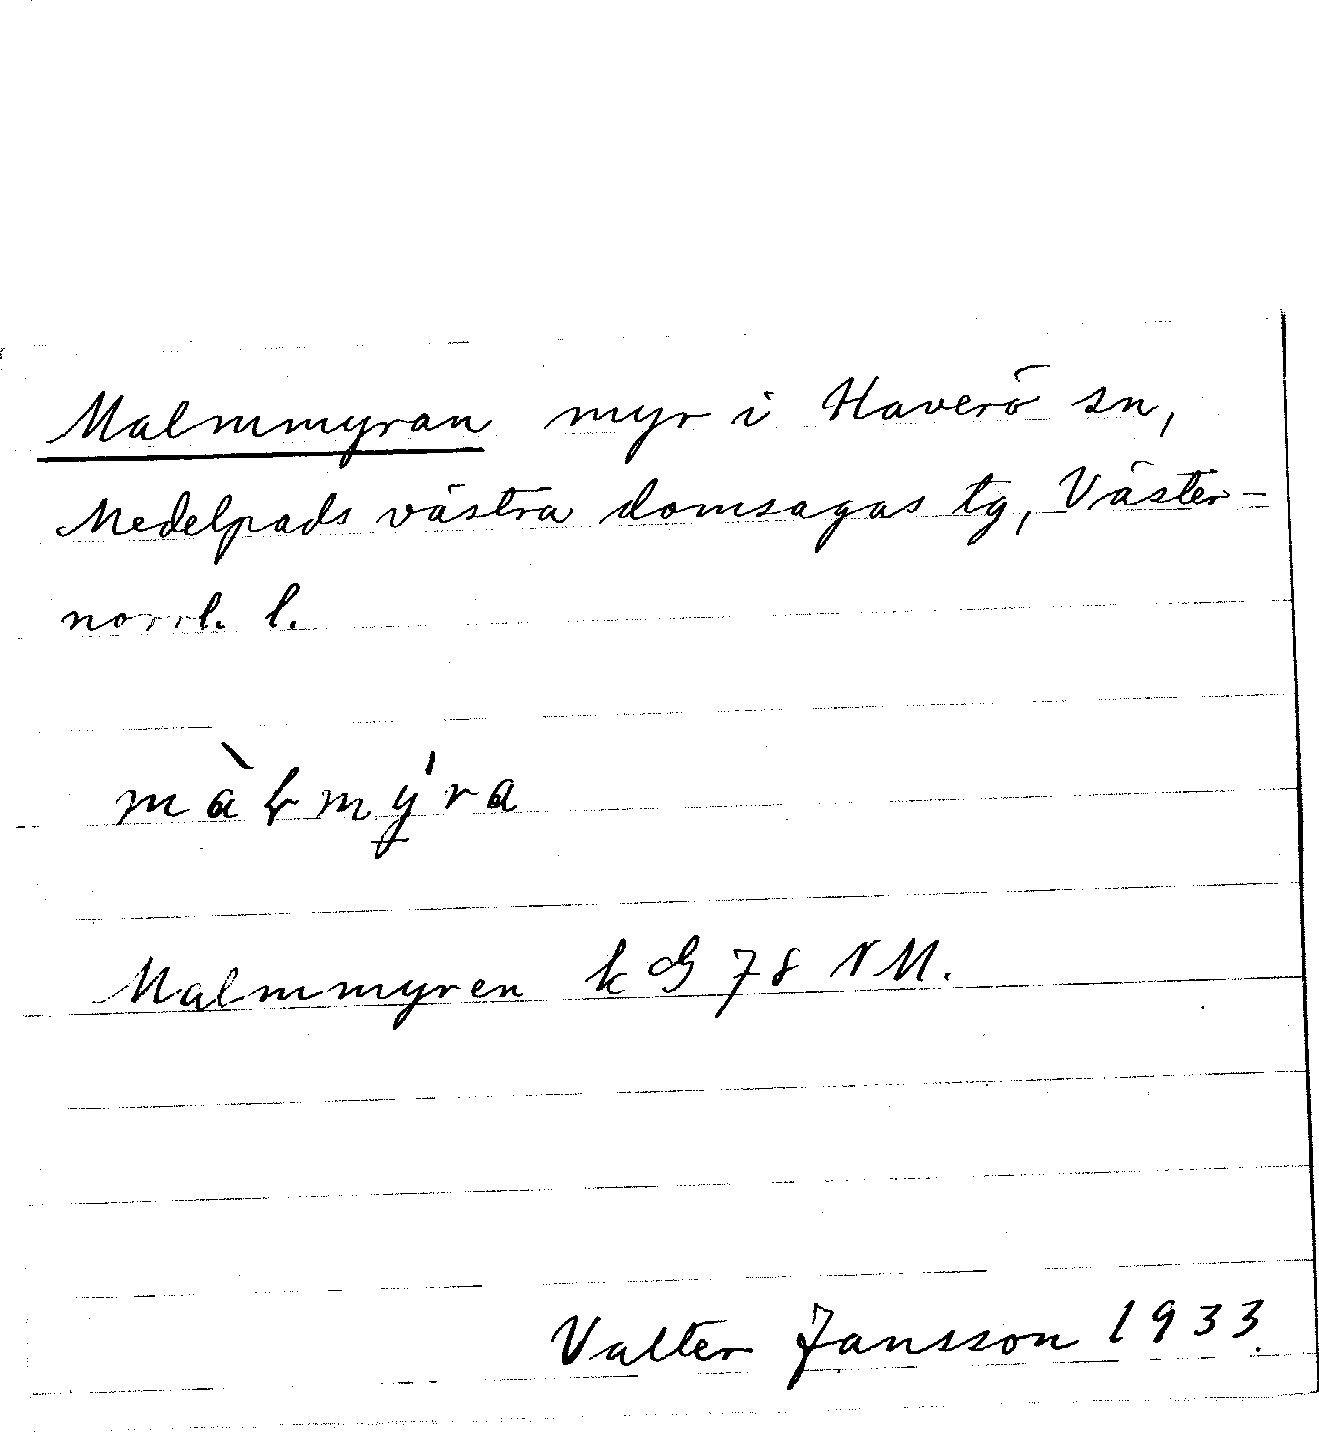 Malmmyran myr i Haverö sn,
Medelpads västra domsagas tg, Väster-
norrl. l.
màƚmý̵ra
Malmmyren k GS 78 NM.
Valter Jansson 1933.